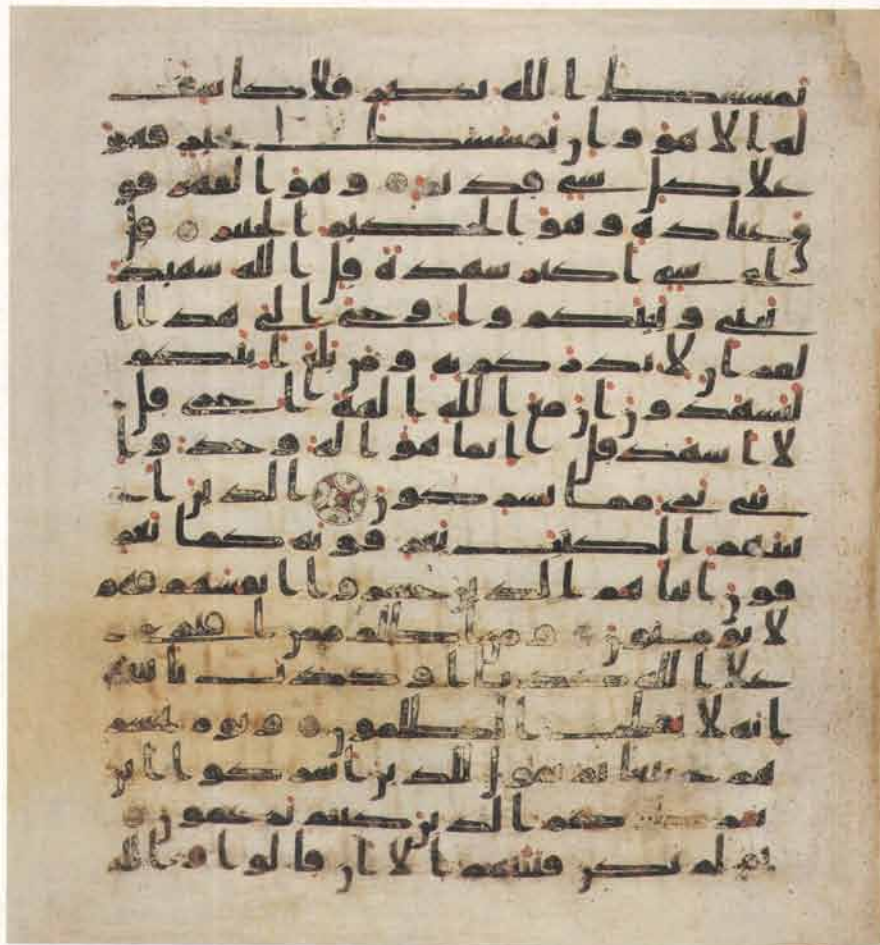 يمسسك الله بضر فلا كاشف
له الا هو وان يمسسك بخير فهو
علا كل شى قدير وهو القهر فو
ق عباده وهو الحكيم الخبير قل
اى شى اكبر شهدة قل الله شهيد
بينى وبينكم واوحى الى هذا ا
لقرن لانذركم به ومن بلغ اينكم
لتشهدون ان مع الله الهة اخرى قل
لا اشهد قل انما هو اله وحد وا
ننى برى مما تشركون الذين اتـ
ينهم الكتب يعرفونه كما يعر
فون ابناهم الذين خسروا انفسهم فهم
لا يومنون ومن اظلم ممن افترى
علا الله كذبا او كذب بايته
انه لا يفلح الظلمون ويوم نحشر
هم جميعا ثم نقول للذين اشركوا اين
شركاوكم الذين كنتم تزعمون
ثم لم تكن فتنتهم الا ان قالوا والله